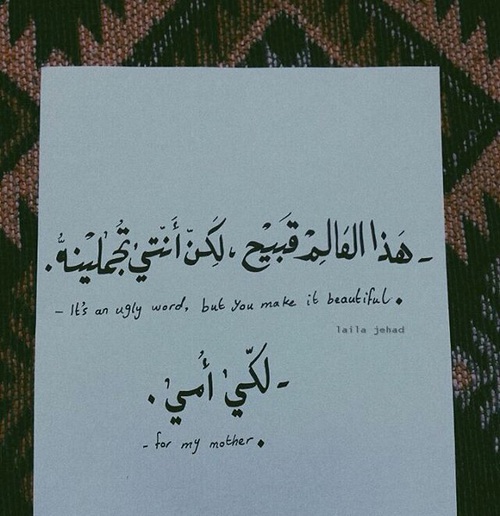 - هَذا العَالِمْ قَبَيْح ، لَكِنّ أَنّتيْ تُجْمَليْنهُ .
- It's an ugly word, but you make it beautiful.
laila jehad
- لكّيْ أُميْ .
- for my mother.